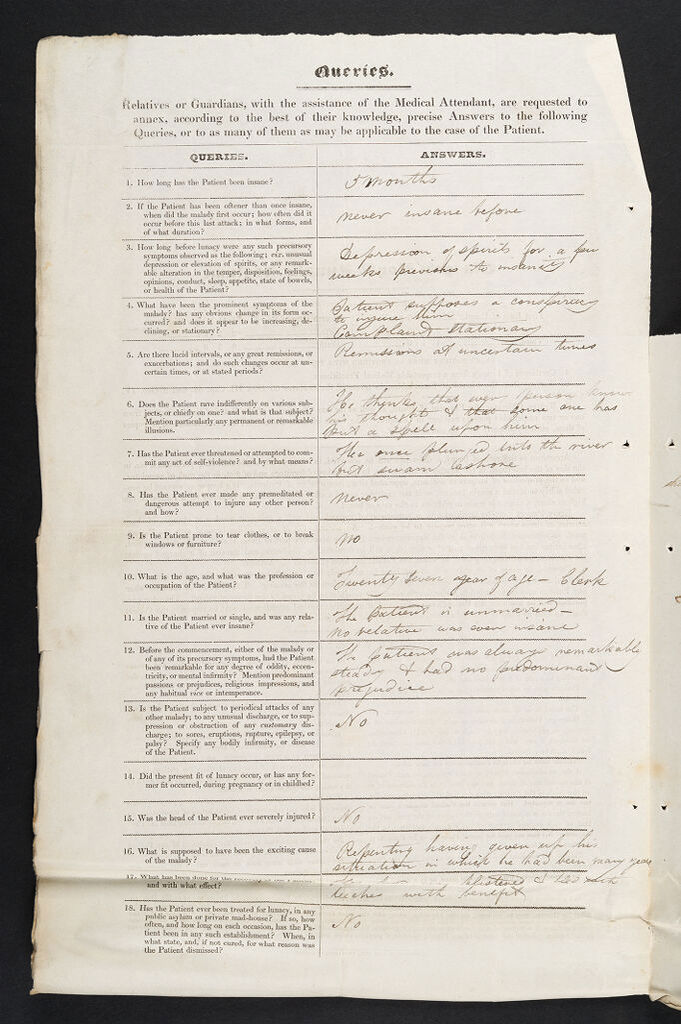 Queries.
Relatives or Guardians, with the assistance of the Medical Attendant, are requested to
annex, according to the best of their knowledge, precise Answers to the following
Queries, or to as many of them as may be applicable to the case of the Patient.
QUERIES.
ANSWERS.
1. How long has the Patient been insane?
5 months
2. If the Patient has been oftener than once insane,
when did the malady first occur; how often did it
occur before this last attack; in what forms, and
of what duration?
never insane before
3. How long before lunacy were any such precursory
symptoms observed as the following; viz. unusual
depression or elevation of spirits, or any remark-
able alteration in the temper, disposition, feelings,
opinions, conduct, sleep, appetite, state of bowels,
or health of the Patient?
Depression of spirits for a few
weeks previous to insanity
4. What have been the prominent symptoms of the
malady? has any obvious change in its form oc-
curred? and does it appear to be increasing, de-
clining, or stationary?
Patient supposes a conspiracy
to injure him
Complaint stationary
5. Are there lucid intervals, or any great remissions, or
exacerbations; and do such changes occur at un-
certain times, or at stated periods?
Remissions at uncertain times
6. Does the Patient rave indifferently on various sub-
jects, or chiefly on one? and what is that subject?
Mention particularly any permanent or remarkable
illusions.
He thinks that every person knows
his thoughts & that some one has
put a spell upon him
7. Has the Patient ever threatened or attempted to com-
mit any act of self-violence? and by what means?
He once plunged into the river
but swam ashore
8. Has the Patient ever made any premeditated or
dangerous attempt to injure any other person?
and how?
never
9. Is the Patient prone to tear clothes, or to break
windows or furniture?
No
10. What is the age, and what was the profession or
occupation of the Patient?
Twenty seven year of age – Clerk
11. Is the Patient married or single, and was any rela-
tive of the Patient ever insane?
The Patient is unmarried –
no relative was ever insane
12. Before the commencement, either of the malady or
of any of its precursory symptoms, had the Patient
been remarkable for any degree of oddity, eccen-
tricity, or mental infirmity? Mention predominant
passions or prejudices, religious impressions, and
any habitual vice or intemperance.
The patient was always remarkably
steady & had no predominant
prejudice
13. Is the Patient subject to periodical attacks of any
other malady; to any unusual discharge, or to sup-
pression or obstruction of any customary dis-
charge; to sores, eruptions, rupture, epilepsy, or
palsy? Specify any bodily infirmity, or disease
of the Patient.
No
14. Did the present fit of lunacy occur, or has any for-
mer fit occurred, during pregnancy or in childbed?
15. Was the head of the Patient ever severely injured?
No
16. What is supposed to have been the exciting cause
of the malady?
Repenting having given up his
situation in which he had been many years
17. What has been done for the
and with what effect?
blistered & had
leeches with benefit
18. Has the Patient ever been treated for lunacy, in any
public asylum or private mad-house? If so, how
often, and how long on each occasion, has the Pa-
tient been in any such establishment? When, in
what state, and, if not cured, for what reason was
the Patient dismissed?
No